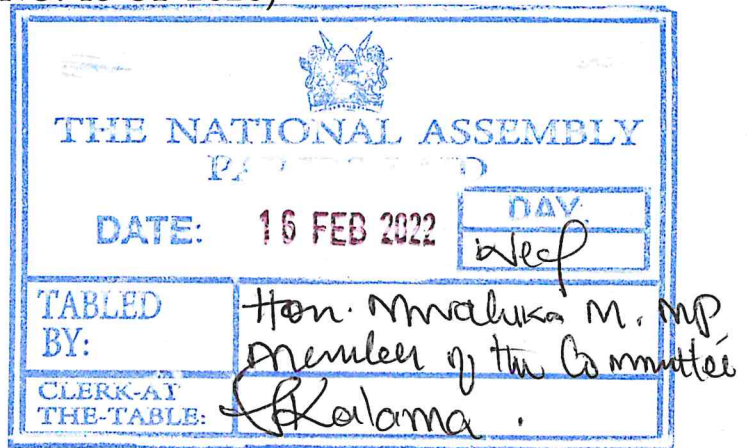 THE NATIONAL ASSEMBLY
DATE: 16 FEB 2022
DAY:
Wed
TABLED BY:
Hon. Mwaluka M. MP
Member of the Committee
CLERK-AT THE-TABLE:
Kalama.